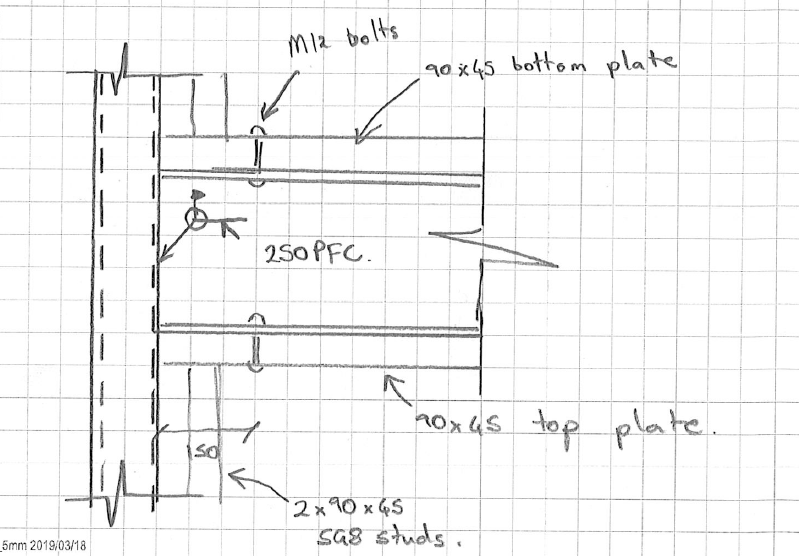 M12 bolts
90x45 bottom plate
250PFC.
90x45 top plate.
150
2x90x45
SG8 studs.
_5mm 2019/03/18